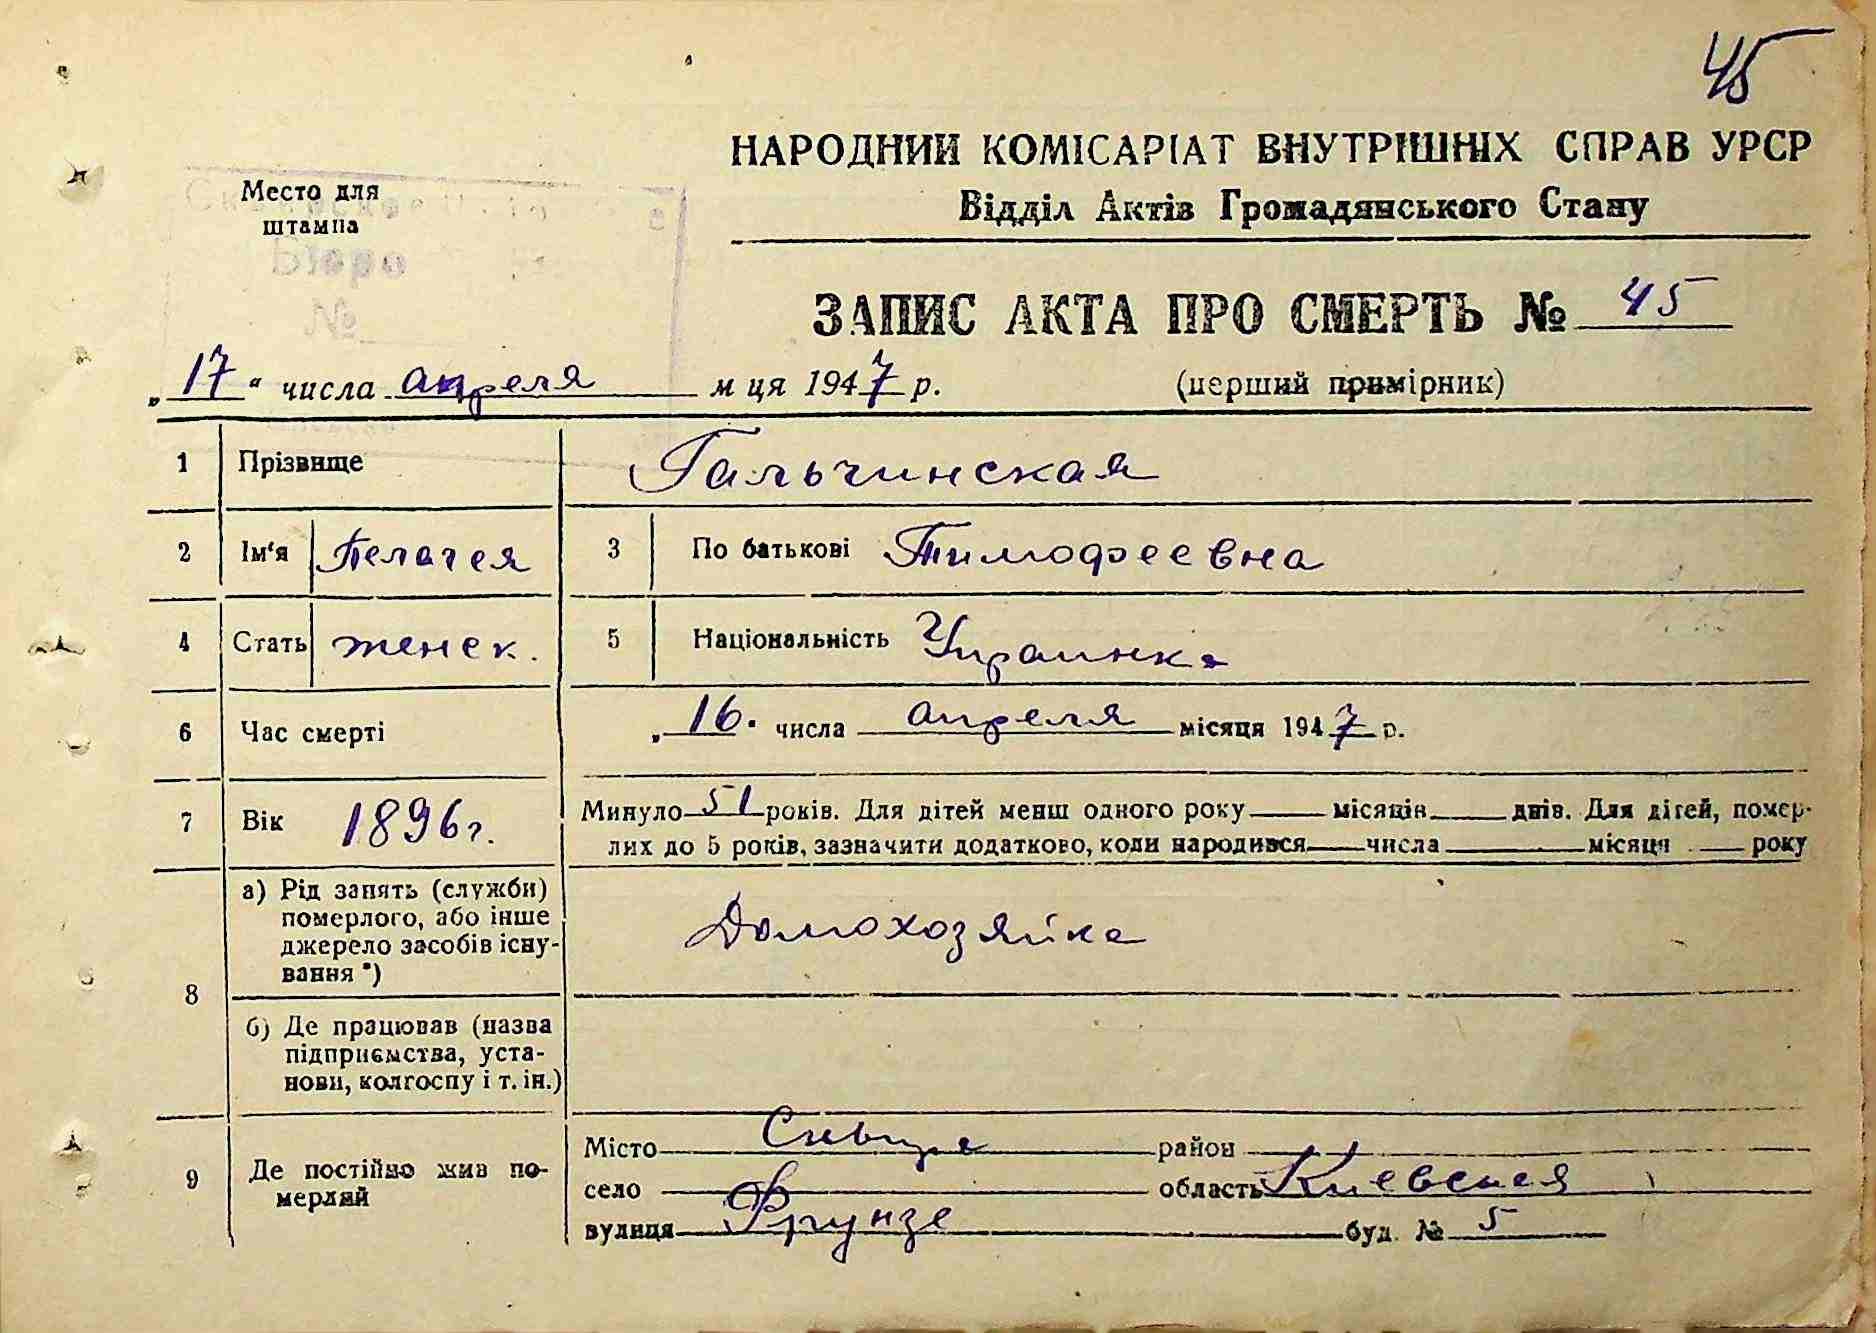 45
НАРОДНИЙ КОМІСАРІАТ ВНУТРІШНІХ СПРАВ УРСР
Відділ Актів Громадянського Стану
Место для
штампа
Бюро
№
ЗАПИС АКТА ПРО СМЕРТЬ № 45
„17“ числа апреля м ця 1947 р. (перший примірник)
1 Прізвище Гальчинская
2 Ім'я Пелагея 3 По батькові Тимофеевна
4 Стать женск. 5 Національність Украинка
6 Час смерті „16. числа апреля місяця 1947 р.
7 Вік 1896г. Минуло 51 років. Для дітей менш одного року місяців днів. Для дітей, помер-
лих до 5 років, зазначити додатково, коли народився числа місяця року
8 а) Рід занять (служби)
померлого, або інше
джерело засобів існу-
вання *)
Домохозяйка
б) Де працював (назва
підприємства, уста-
нови, колгоспу і т. ін.)
9 Де постійно жив по-
мерлий
Місто Сквира район
село область Киевская
вулиця Фрунзе буд. № 5